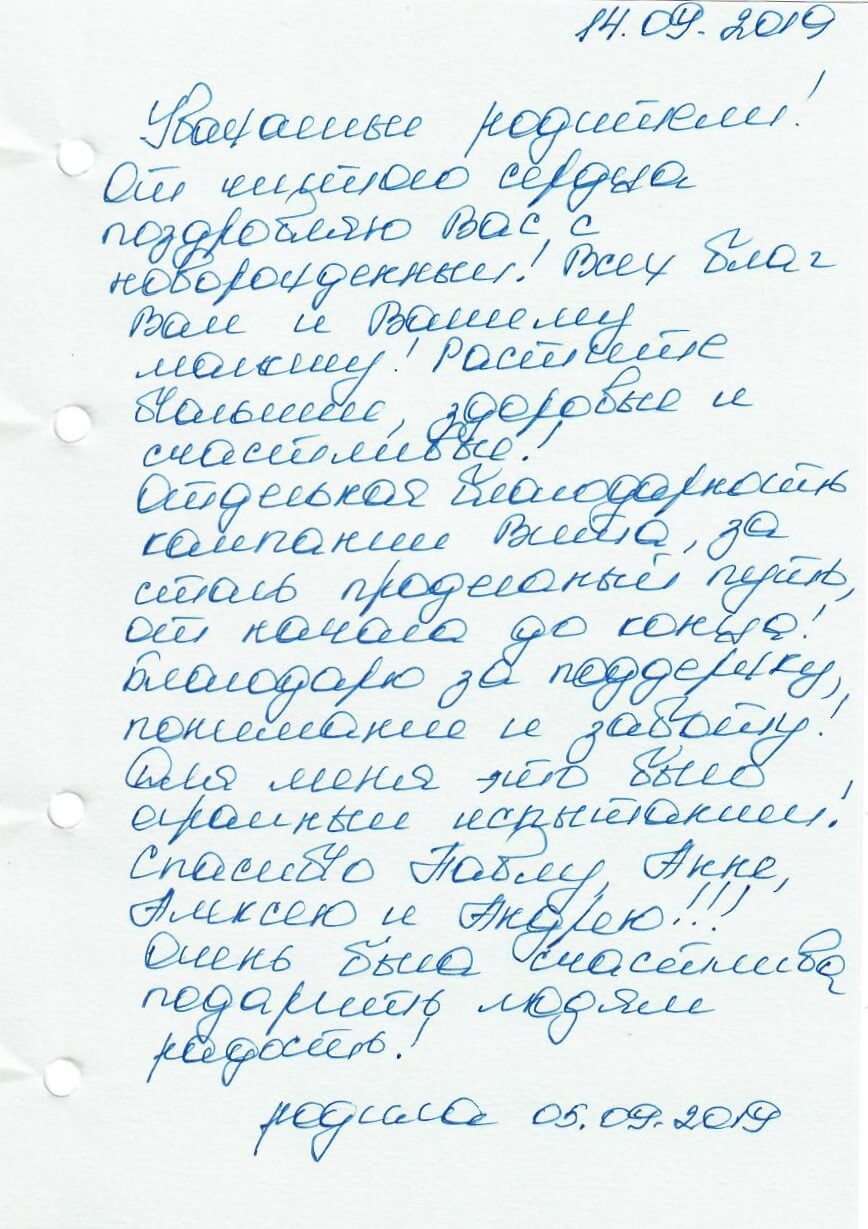 14.09.2019
Уважаемые родители!
От чистого сердца
поздровляю Вас с
новорожденным! Всех благ
Вам и Вашему
малышу! Растите
большими, здоровые и
счастливые!
Отдельная благодарность
компании Вита, за
столь проделаный путь,
от начала до конца!
Благодарю за поддержку,
понимание и заботу!
Для меня это было
огромным испытанием!
Спасибо Павлу, Анне,
Алексею и Андрею!!!
Очень была счастлива
подарить людям
радость!
родила 05.09.2019